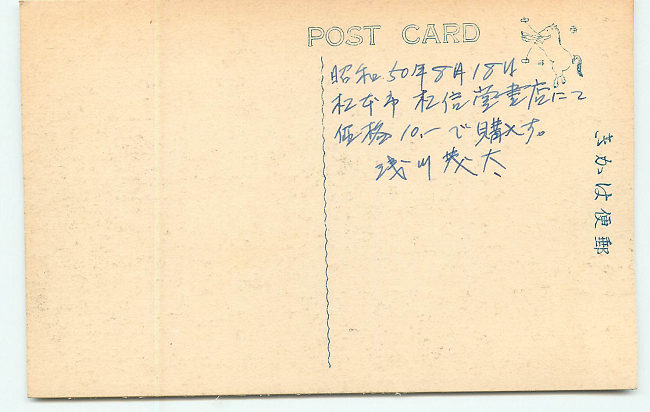 POST CARD
昭和50年8月18日
松本市 松信堂書店にて
価格10.-で購入す。
浅川茂太
きかは便郵